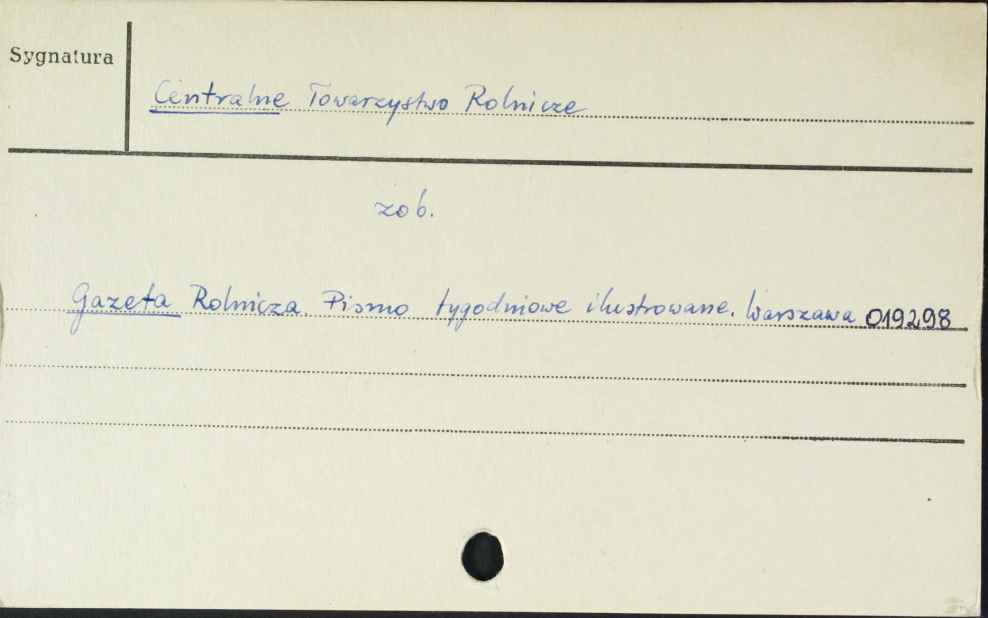 Sygnatura
Centralne Towarzystwo Rolnicze
zob.
Gazeta Rolnicza Pismo tygodniowe ilustrowane. Warszawa 019298